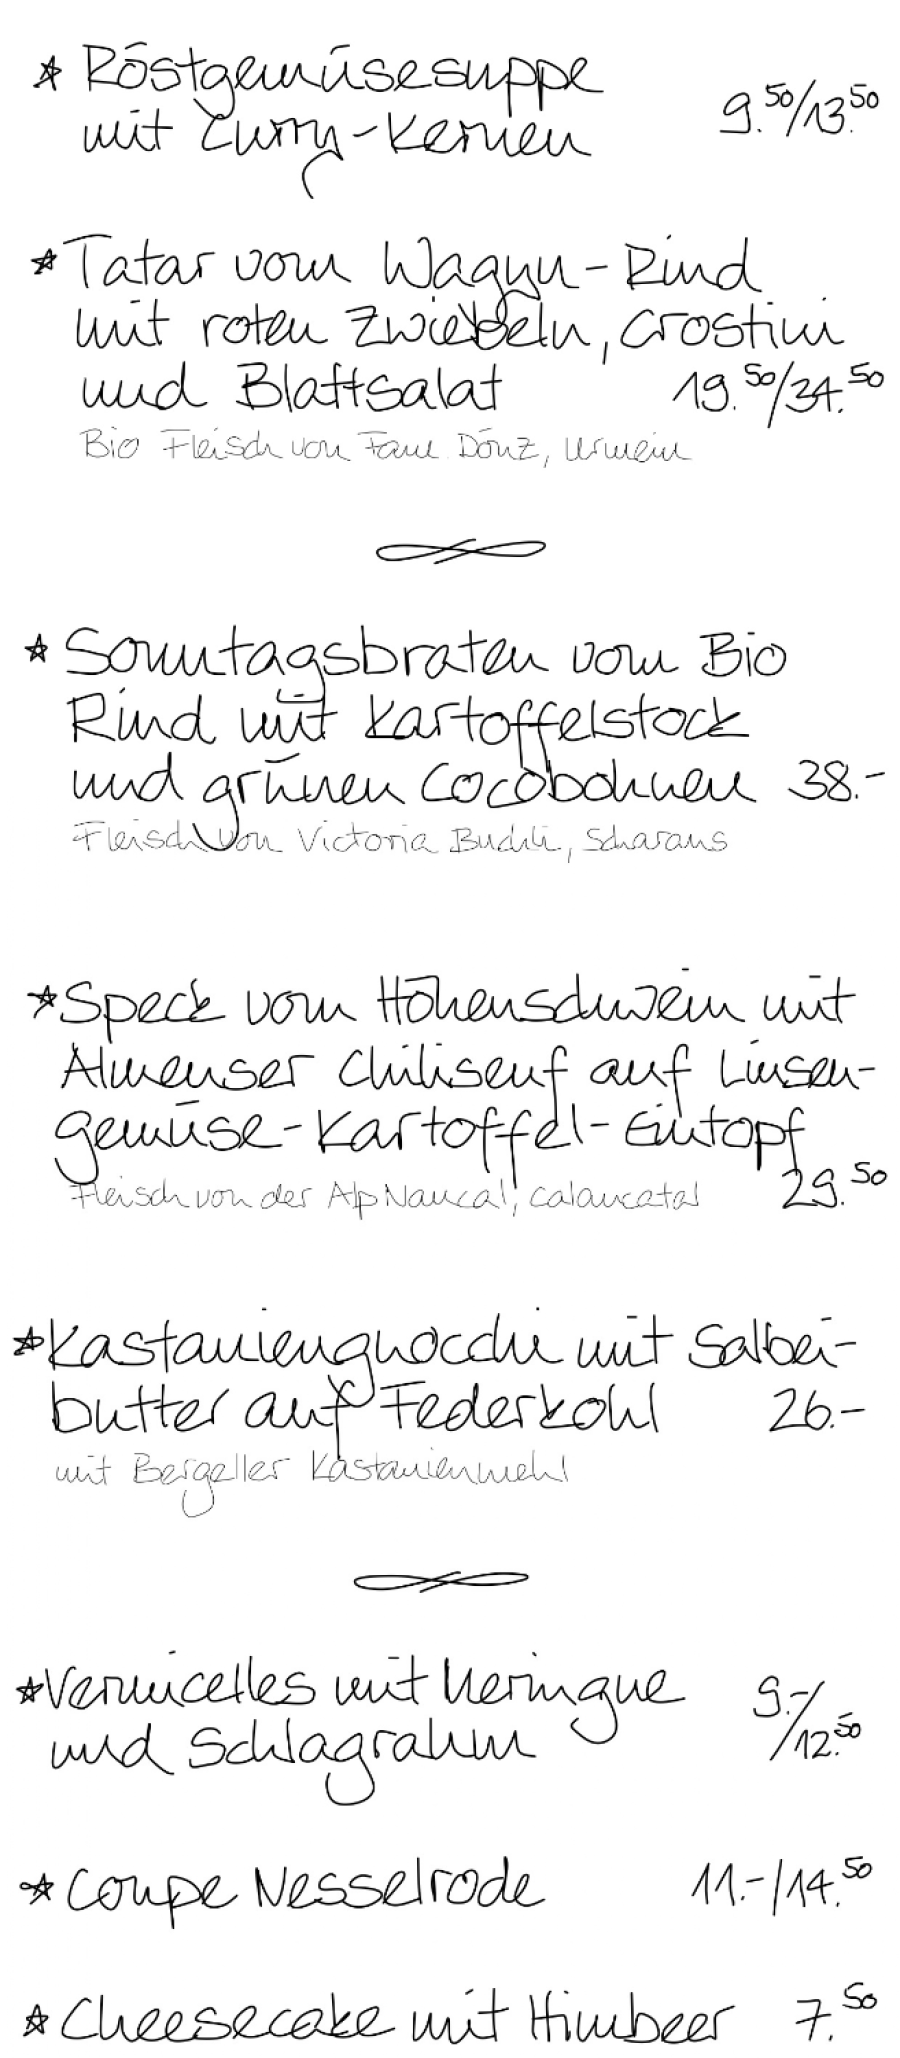 * Röstgemüsesuppe
mit Curry-Kernen 9.50/13.50
* Tatar vom Wagyu-Rind
mit roten Zwiebeln, Crostini
und Blattsalat 19.50/34.50
Bio Fleisch von Fam Dönz, Urmein
* Sonntagsbraten vom Bio
Rind mit Kartoffelstock
und grünen Cocobohnen 38.-
Fleisch von Victoria Buchli, Scharans
* Speck vom Höhenschwein mit
Almenser Chilisenf auf Linsen-
gemüse-Kartoffel-Eintopf
Fleisch von der Alp Naucal, Calancatal 29.50
* Kastaniengnocchi mit Salbei-
butter auf Federkohl 26.-
mit Bergeller Kastanienmehl
* Vermicelles mit Meringue 9.-/
und Schlagrahm 12.50
* Coupe Nesselrode 11.-/14.50
* Cheesecake mit Himbeer 7.50